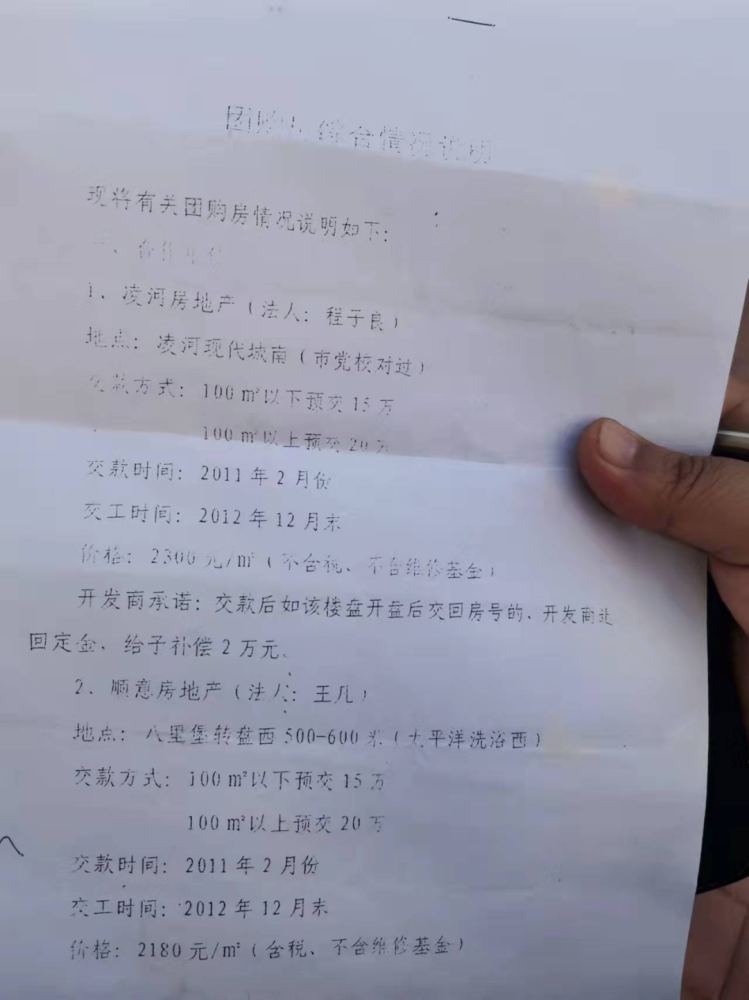 团购 综合情况说明
现将有关团购房情况说明如下：
一、合作
1、凌河房地产（法人：程子良）
地点：凌河现代城南（市党校对过）
交款方式：100㎡以下预交15万
100㎡以上预交20万
交款时间：2011年2月份
交工时间：2012年12月末
价格：2300元/㎡（不含税、不含维修基金）
开发商承诺：交款后如该楼盘开盘后交回房号的，开发商
回定金，给予补偿2万元。
2、顺意房地产（法人：王几）
地点：八里堡转盘西500-600米（太平洋洗浴西）
交款方式：100㎡以下预交15万
100㎡以上预交20万
交款时间：2011年2月份
交工时间：2012年12月末
价格：2180元/㎡（含税、不含维修基金）